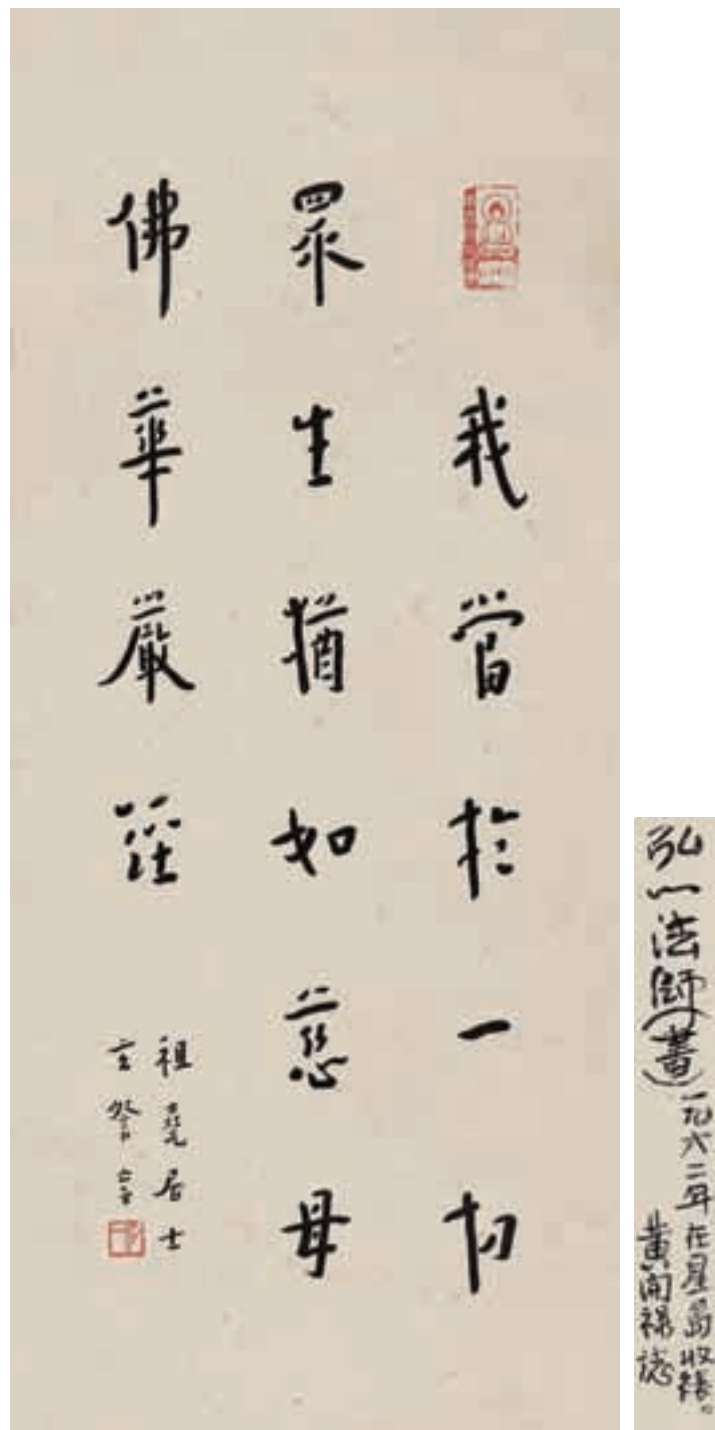 我當於一切
眾生猶如慈母
佛華嚴經
祖堯居士
弘一法師(書)
一九六二年在星島收裱。
黃開祿誌